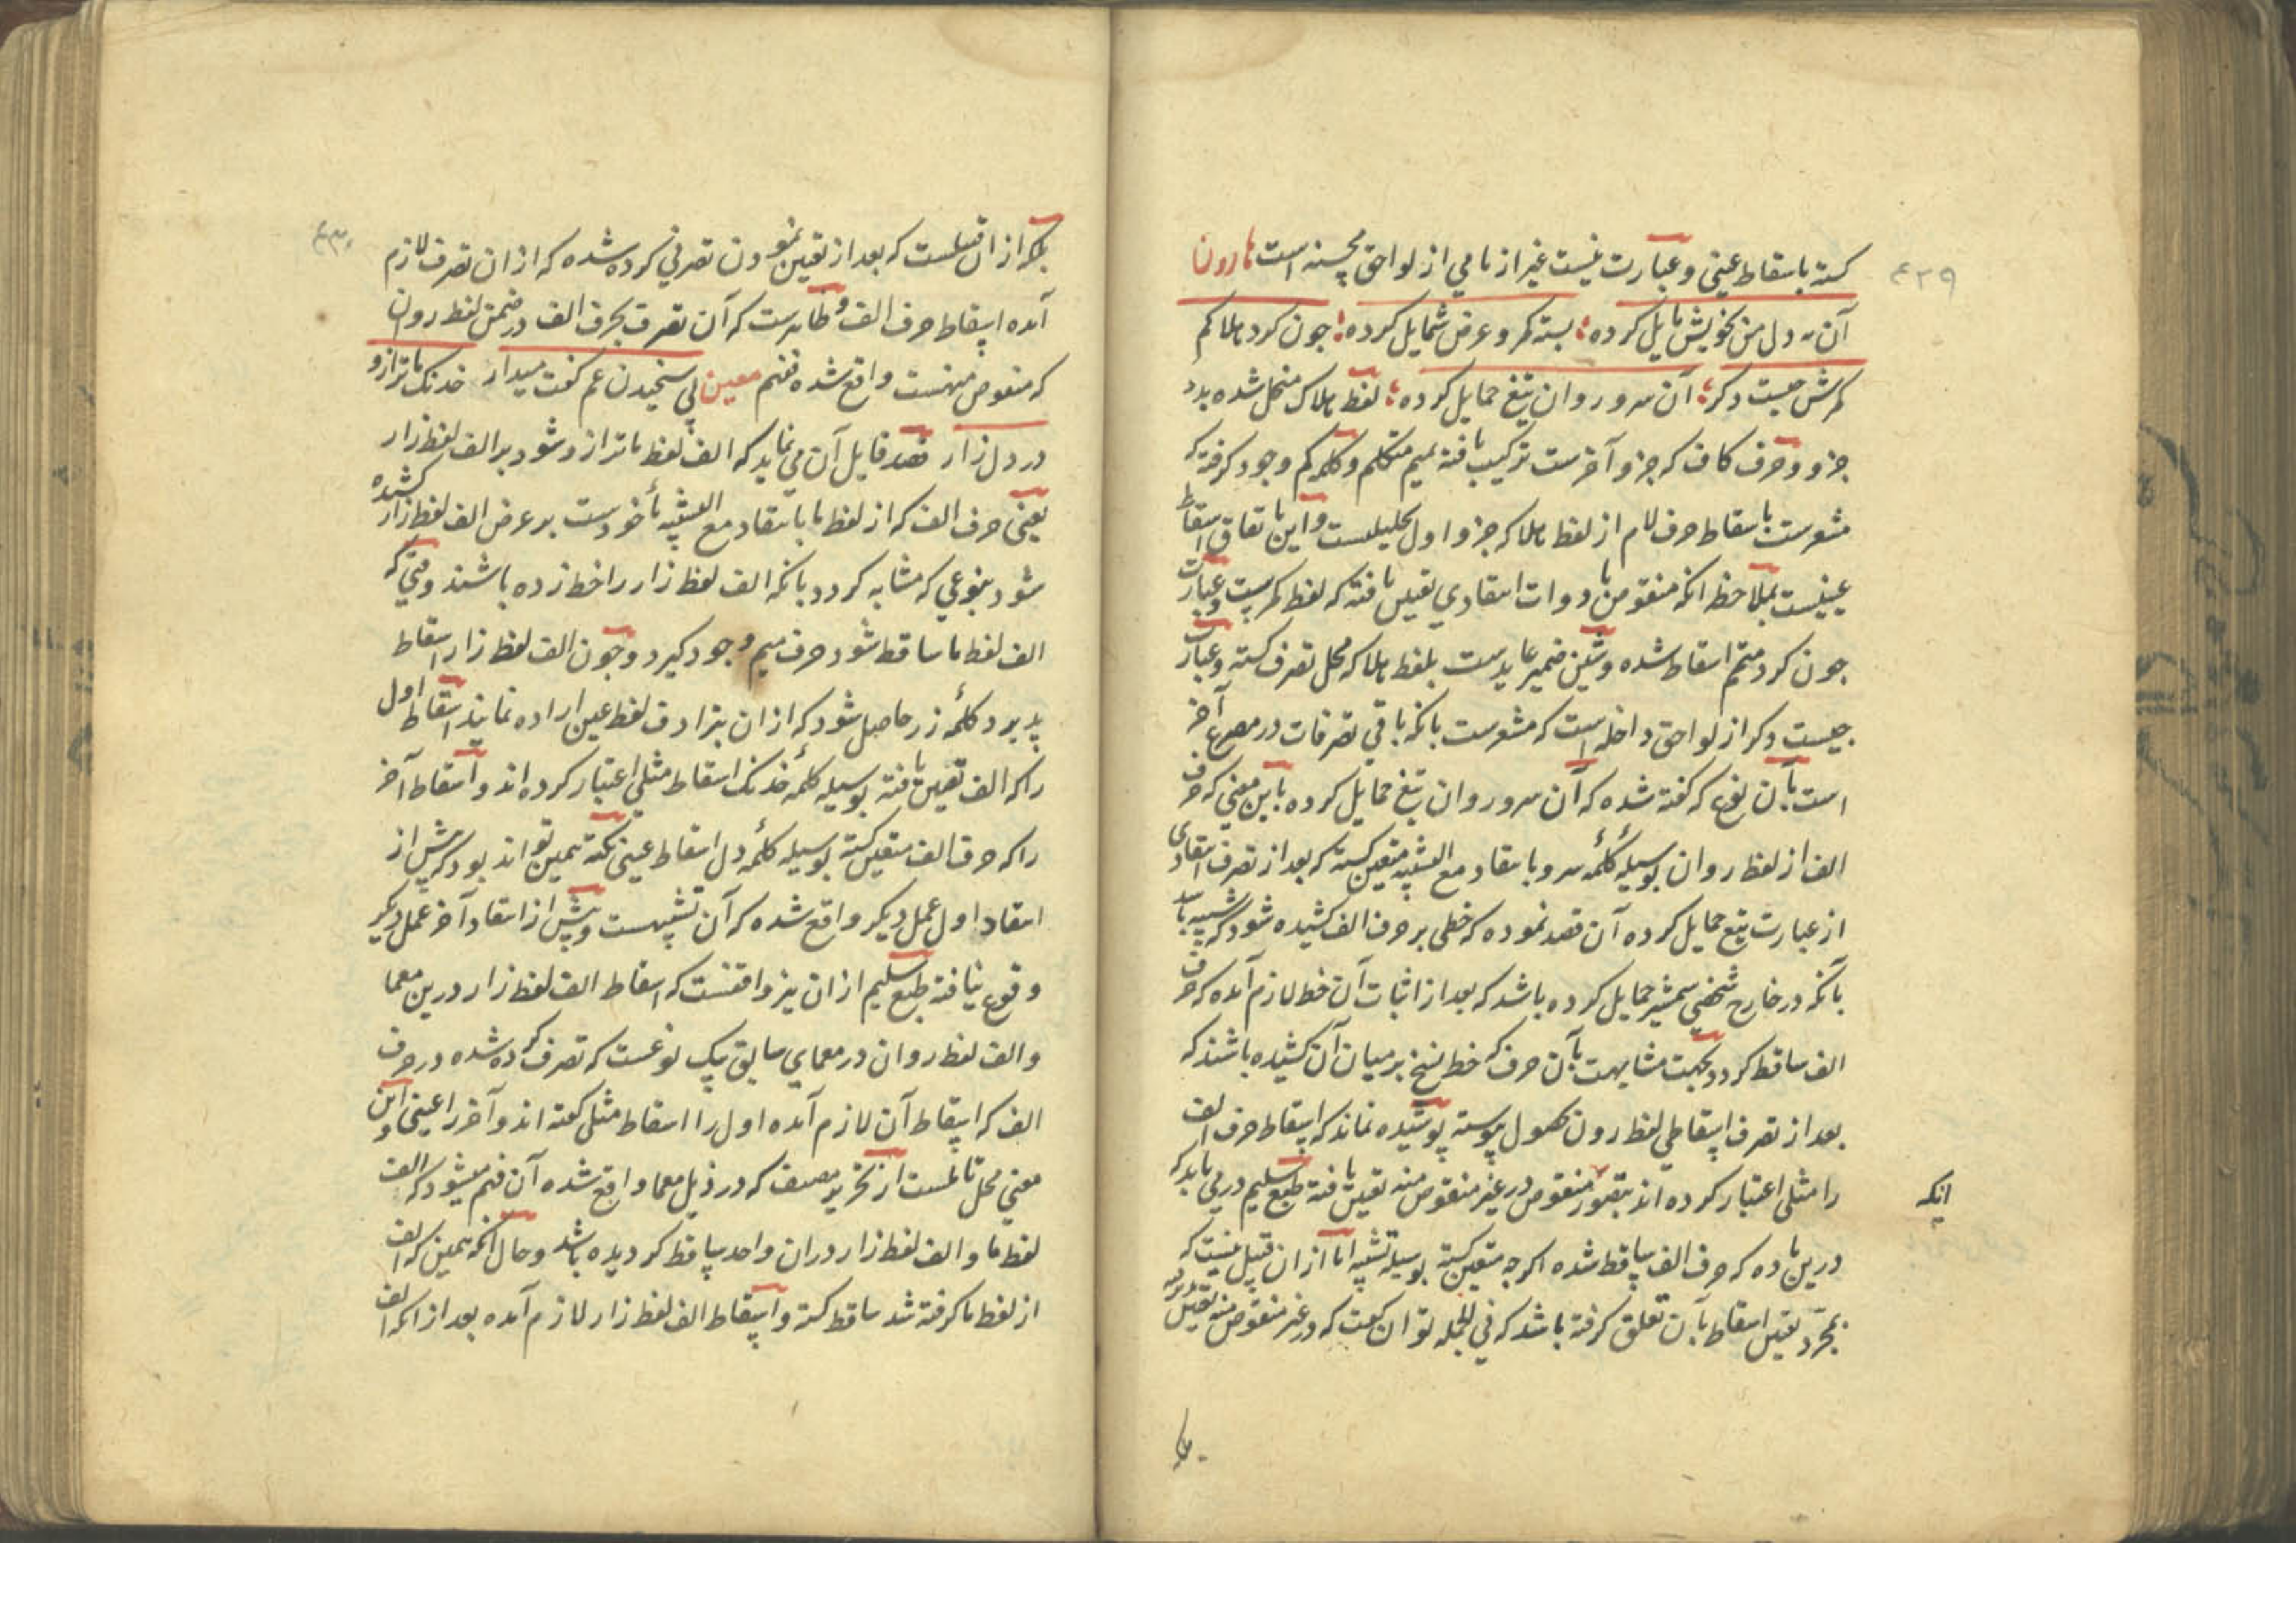 ۴۲۹
کشته باسقاط عینی و عبارت نیست غیر از نامی از لواحق محسنه است هارون
آن مه دل من بخویش مایل کرده بسته کمر و عرض شمایل کرده چون کرد هلاکم
کمرش چیست دکر آن سرو روان تیغ حمایل کرده لفظ هلاک منحل شده بدو
جزو و حرف کاف که جزو آخرست ترکیب یافته بمیم متکلم و کلمه کم وجود کرفته که
مشعرست باسقاط حرف لام از لفظ هلا که جزو اول تحلیلست و این باتفاق اسقاط
عینیست بملاحظه انکه منقوص بادوات اسقادی تعیین یافته که لفظ کمرست و عبارت
چون کرد متمم اسقاط شده و شین ضمیر عایدست بلفظ هلا که محل تصرف کشته و عبارت
چیست دکر از لواحق داخله است که مشعرست بانکه باقی تصرفات در مصرع آخر
است بآن نوع که کفته شده که آن سرو روان تیغ حمایل کرده باین معنی که حرف
الف از لفظ روان بوسیله کلمه سرو باسقاد مع التشبیه متعین کشته که بعد از تصرف اسقادی
از عبارت تیغ حمایل کرده آن قصد نموده که خطی بر حرف الف کشیده شود که شبیه باشد
بآنکه در خارج شخصی شمشیر حمایل کرده باشد که بعد از اثبات آن خط لازم آمده که حرف
الف ساقط کردد بجهت مشابهت بآن حرف که خط نسخ بر میان آن کشیده باشند که
بعد از تصرف اسقاطی لفظ رون بحصول پیوسته پوشیده نماند که اسقاط حرف الف
را مثلی اعتبار کرده اند بتصور منقوص در غیر منقوص منه تعیین یافته طبع سلیم در می یابد که
انکه
درین ماده که حرف الف ساقط شده اکرچه متعین کشته بوسیله تشبیه اما از ان قبیل نیست که
بمجرد تعیین اسقاط بآن تعلق کرفته باشد که فی الجمله توان کفت که در غیر منقوص منه تعیین
۴۳۰
بلکه از ان قبیلست که بعد از تعیین نمودن تصرفی کرده شده که از ان تصرف لازم
آمده اسقاط حرف الف و ظاهرست که آن تصرف بحرف الف در ضمن لفظ روان
که منقوص منهست واقع شده فافهم معین پی سنجیدن غم کفت میدار خدنک ما ترازو
در دل زار قصد قایل آن می نماید که الف لفظ ما ترازو شود بر الف لفظ زار
یعنی حرف الف که از لفظ ما باسقاد مع التشبیه مأخودست بر عرض الف لفظ زار کشیده
شود بنوعی که مشابه کردد بانکه الف لفظ زار را خط زده باشند وقتی که
الف لفظ ما ساقط شود حرف میم وجود کیرد و چون الف لفظ زار اسقاط
پذیرد کلمه زر حاصل شود که از ان بترادف لفظ عین اراده نمایند اسقاط اول
را که الف تعیین یافته بوسیله کلمه خدنک اسقاط مثلی اعتبار کرده اند و اسقاط آخر
را که حرف الف متعین کشته بوسیله کلمه دل اسقاط عینی نکته همین تواند بود که پیش از
اسقاد اول عمل دیکر واقع شده که آن تشبیهست و پیش از اسقاد آخر عمل دیکر
وقوع نیافته طبع سلیم از ان نیز واقفست که اسقاط الف لفظ زار درین معما
و الف لفظ روان در معمای سابق یک نوعست که تصرف کرده شده در حرف
الف که اسقاط آن لازم آمده اول را اسقاط مثلی کفته اند و آخر را عینی و این
معنی محل تاملست از تحریر مصنف که در ذیل معما واقع شده آن فهم میشود که الف
لفظ ما و الف لفظ زار در ان واحد ساقط کردیده باشد و حال آنکه همین که الف
از لفظ ما کرفته شد ساقط کشته و اسقاط الف لفظ زار لازم آمده بعد از انکه الف